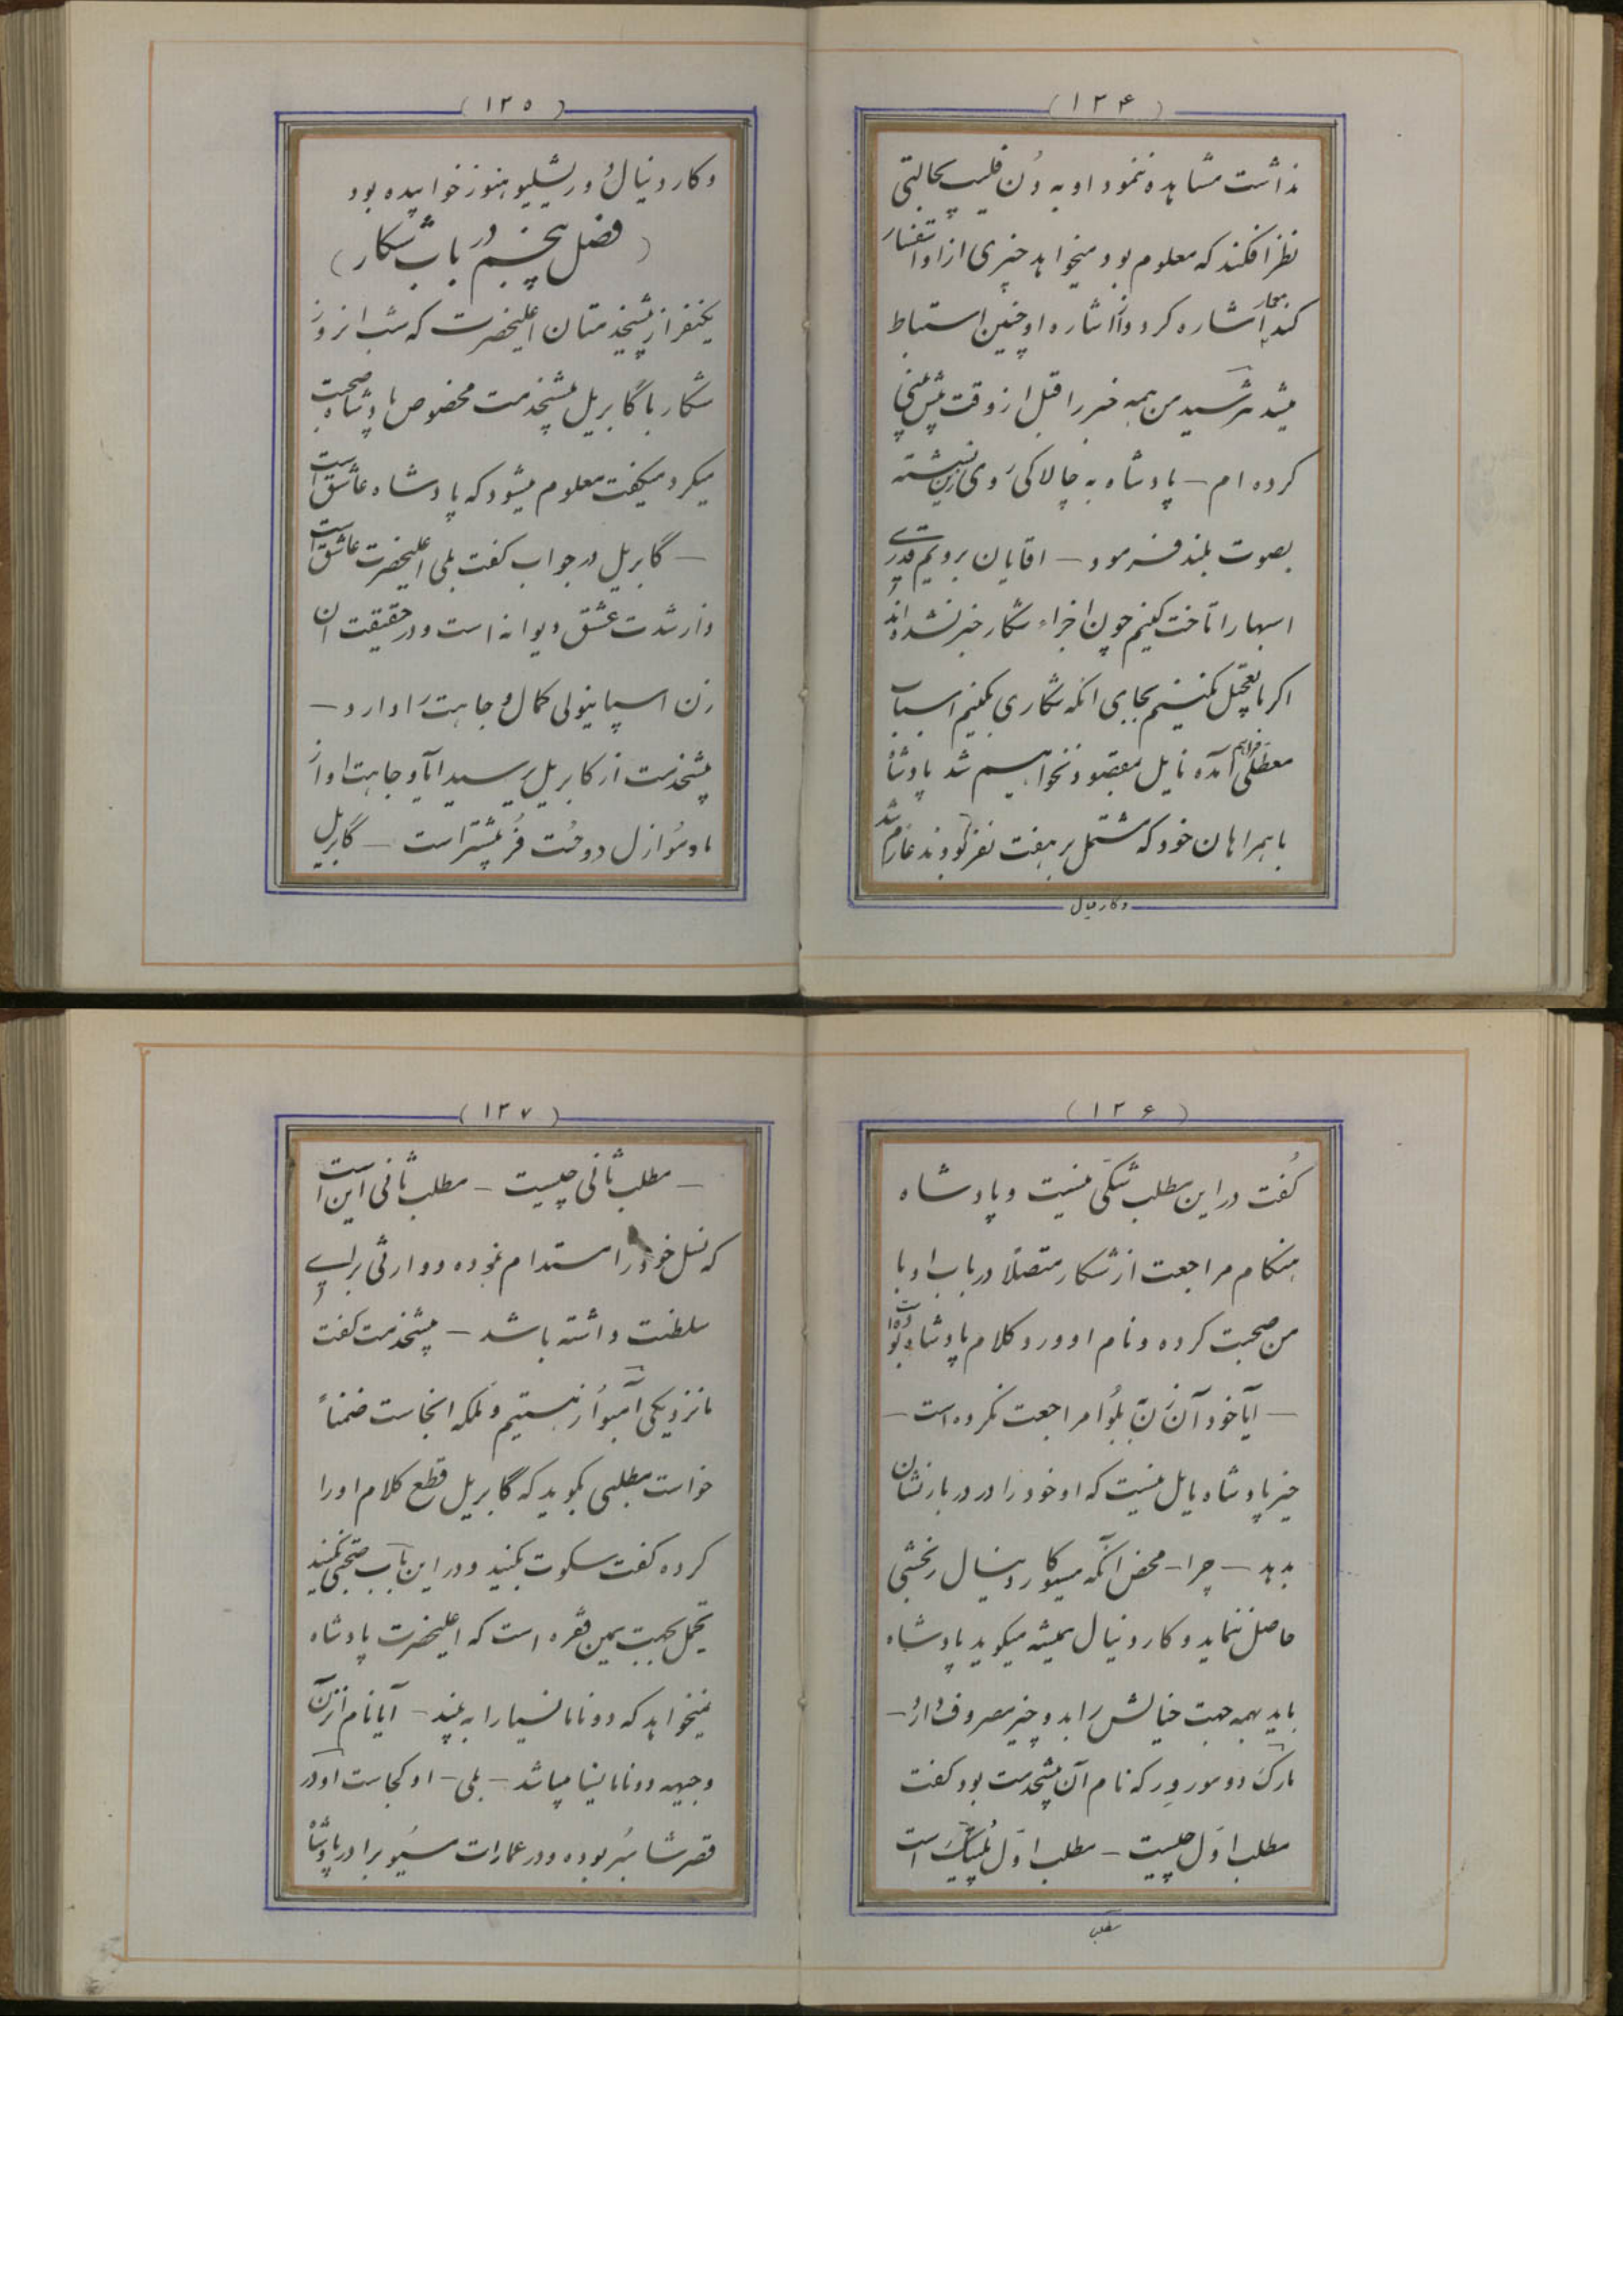 (۱۲۴)
نداشت مشاهده ننمود او به دُن فلیپ بحالتی
نظر افکند که معلوم بود میخواهد خبری از او استفسار
کند اشاره کرد و از اشاره او چنین استنباط
میشد مترسید من همه خبر را قبل از وقت پیش بینی
کرده ام – پادشاه به چالاکی روی زین نشسته
بصوت بلند فرمود – اقایان برویم قدری
اسبها را تاخت کنیم چون اجزاء شکار خبر نشده اند
اکر ما تعجیل نکنیم بجای انکه شکاری بکنیم اسباب
معطلی فراهم آمده نایل بمقصود نخواهیم شد پادشاه
با همراهان خود که مشتمل بر هفت نفر بودند عازم شد
وکاردنیال
(۱۲۵)
وکاردنیال دوریشلیو هنوز خوابیده بود
(فصل پنجم در باب شکار)
یکنفر از پیشخدمتان اعلیحضرت که شب انروز
شکار با گابریل پیشخدمت مخصوص پادشاه صحبت
میکرد میکفت معلوم میشود که پادشاه عاشق است
– گابریل در جواب کفت بلی اعلیحضرت عاشق است
و از شدت عشق دیوانه است و در حقیقت ان
زن اسپانیولی کمال وجاهت را دارد –
پیشخدمت از کابریل پرسید ایا وجاهت او از
مادموازل دوحُت فُر بیشتر است – گابریل
(۱۲۶)
کُفت در این مطلب شکّی نیست و پادشاه
هنکام مراجعت از شکار متصلاً در باب او با
من صحبت کرده و نام او ورد کلام پادشاه بوده است
– آیا خود آن زن بلُوا مراجعت نکرده است –
خیر پادشاه مایل نیست که او خود را در دربار نشان
بدهد – چرا – محض آنکه مسیو کاردنیال رنجشی
حاصل ننماید و کاردنیال همیشه میکوید پادشاه
باید بهمه جهت خیالش را بدو چیز مصروف دارد –
مارک دومورور که نام آن پیشخدمت بود کفت
مطلب اوّل چیست – مطلب اوّل پُلتیک است
مطلب
(۱۲۷)
– مطلب ثانی چیست – مطلب ثانی این است
که نسل خود را مستدام نموده و وارثی برای
سلطنت داشته باشد – پیشخدمت کفت
ما نزدیکی آمبوُاز هستیم و ملکه انجاست ضمناً
خواست مطلبی بکوید که گابریل قطع کلام او را
کرده کفت سکوت بکنید و در این باب صحبتی نکنید
تحمل بجهت همین فقره است که اعلیحضرت پادشاه
نمیخواهد که دونا مانسیا را به بیند – آیا نام انزن
وجیهه دونا مانسیا میباشد – بلی – او کجاست او در
قصر شامبُر بوده و در عمارات مسیو برادر پادشاه